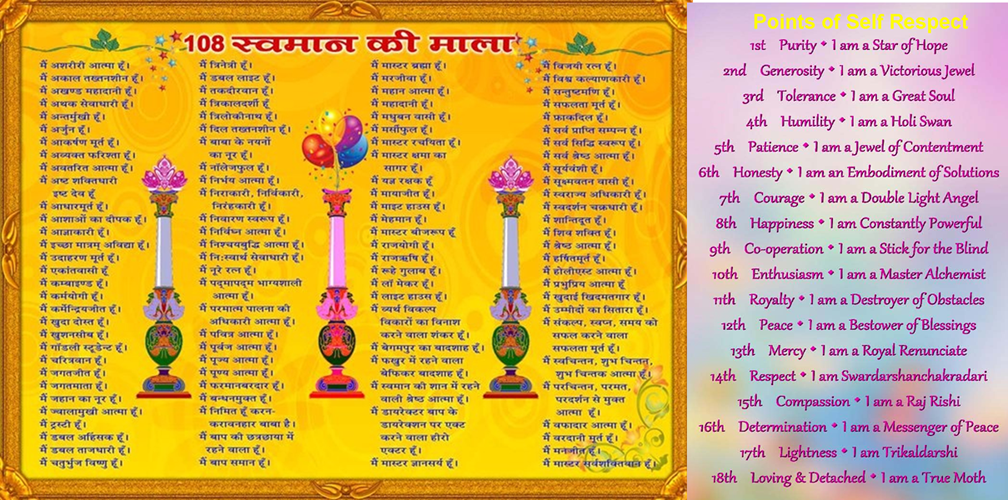 108 स्वमान की माला
मैं अशरीरी आत्मा हूँ।
मैं अकाल तख्तनशीन हूँ।
मैं अखण्ड महादानी हूँ।
मैं अथक सेवाधारी हूँ।
मैं अन्तर्मुखी हूँ।
मैं अर्जुन हूँ।
मैं आकर्षण मूर्त हूँ।
मैं अव्यक्त फरिश्ता हूँ।
मैं अवतरित आत्मा हूँ।
मैं अष्ट शक्तिधारी
इष्ट देव हूँ
मैं आधारमूर्त हूँ।
मैं आशाओं का दीपक हूँ।
मैं आज्ञाकारी हूँ।
मैं इच्छा मात्रम् अविद्या हूँ।
मैं उदाहरण मूर्त हूँ।
मैं एकांतवासी हूँ
मैं कम्बाइण्ड हूँ।
मैं कर्मयोगी हूँ।
मैं कर्मेन्द्रियजीत हूँ।
मैं खुदा दोस्त हूँ।
मैं खुशनसीब हूँ।
मैं गॉडली स्टूडेन्ट हूँ।
मैं चरित्रवान हूँ।
मैं जगतजीत हूँ।
मैं जगतमाता हूँ।
मैं जहान का नूर हूँ।
मैं ज्वालामुखी आत्मा हूँ।
मैं ट्रस्टी हूँ।
मैं डबल अहिंसक हूँ।
मैं डबल ताजधारी हूँ।
मैं चतुर्भुज विष्णु हूँ।
मैं त्रिनेत्री हूँ।
मैं डबल लाइट हूँ।
मैं तकदीरवान हूँ।
मैं त्रिकालदर्शी हूँ
मैं त्रिलोकीनाथ हूँ।
मैं दिल तख्तनशीन हूँ।
मैं बाबा के नयनों
का नूर हूँ।
मैं नॉलेजफुल हूँ।
मैं निर्भय आत्मा हूँ।
मैं निराकारी, निर्विकारी,
निरहंकारी हूँ।
मैं निवारण स्वरूप हूँ।
मैं निर्विघ्न आत्मा हूँ।
मैं निश्चयबुद्धि आत्मा हूँ।
मैं निःस्वार्थ सेवाधारी हूँ।
मैं नूरे रत्न हूँ।
मैं पद्मापद्म भाग्यशाली
आत्मा हूँ।
मैं परमात्म पालना की
अधिकारी आत्मा हूँ।
मैं पवित्र आत्मा हूँ।
मैं पूर्वज आत्मा हूँ।
मैं पूज्य आत्मा हूँ।
मैं पुण्य आत्मा हूँ।
मैं फरमानबरदार हूँ।
मैं बन्धनमुक्त हूँ।
मैं निमित्त हूँ करन-
करावनहार बाबा है।
मैं बाप की छत्रछाया में
रहने वाला हूँ।
मैं बाप समान हूँ।
मैं मास्टर ब्रह्मा हूँ।
मैं मरजीवा हूँ।
मैं महान आत्मा हूँ।
मैं महादानी हूँ।
मैं मधुबन वासी हूँ।
मैं मर्सीफुल हूँ।
मैं मास्टर रचयिता हूँ।
मैं मास्टर क्षमा का
सागर हूँ।
मैं यज्ञ रक्षक हूँ
मैं मायाजीत हूँ।
मैं माइट हाउस हूँ।
मैं मेहमान हूँ।
मैं मास्टर बीजरूप हूँ
मैं राजयोगी हूँ।
मैं राजऋषि हूँ।
मैं रूहे गुलाब हूँ।
मैं लॉ मेकर हूँ।
मैं लाइट हाउस हूँ।
मैं व्यर्थ विकल्प
विकारों का विनाश
करने वाला शंकर हूँ।
मैं बेगमपुर का बादशाह हूँ।
मैं फखुर में रहने वाला
बेफिकर बादशाह हूँ।
मैं स्वमान की शान में रहने
वाली श्रेष्ठ आत्मा हूँ।
मैं डायरेक्टर बाप के
डायरेक्शन पर एक्ट
करने वाला हीरो
एक्टर हूँ।
मैं मास्टर ज्ञानसूर्य हूँ।
मैं विजयी रत्न हूँ।
मैं विश्व कल्याणकारी हूँ।
मैं सन्तुष्टमणि हूँ।
मैं सफलता मूर्त हूँ।
मैं फ्राकदिल हूँ।
मैं सर्व प्राप्ति सम्पन्न हूँ।
मैं सर्व सिद्धि स्वरूप हूँ।
मैं सर्व श्रेष्ठ आत्मा हूँ।
मैं सूर्यवंशी हूँ।
मैं सूक्ष्मवतन वासी हूँ।
मैं स्वराज्य अधिकारी हूँ।
मैं स्वदर्शन चक्रधारी हूँ।
मैं शान्तिदूत हूँ।
मैं शिव शक्ति हूँ।
मैं श्रेष्ठ आत्मा हूँ।
मैं हर्षितमूर्त हूँ।
मैं होलीएस्ट आत्मा हूँ।
मैं प्रभुप्रिय आत्मा हूँ।
मैं खुदाई खिदमतगार हूँ।
मैं उम्मीदों का सितारा हूँ।
मैं संकल्प, स्वप्न, समय को
सफल करने वाला
सफलता मूर्त हूँ।
मैं स्वचिन्तन, शुभ चिन्तन,
शुभ चिन्तक आत्मा हूँ।
मैं परचिन्तन, परमत,
परदर्शन से मुक्त
आत्मा हूँ।
मैं वफादार आत्मा हूँ।
मैं वरदानी मूर्त हूँ।
मैं मनजीत हूँ।
मैं मास्टर सर्वशक्तिवान हूँ।
Points of Self Respect
1st Purity * I am a Star of Hope
2nd Generosity * I am a Victorious Jewel
3rd Tolerance * I am a Great Soul
4th Humility * I am a Holi Swan
5th Patience * I am a Jewel of Contentment
6th Honesty * I am an Embodiment of Solutions
7th Courage * I am a Double Light Angel
8th Happiness * I am Constantly Powerful
9th Co-operation * I am a Stick for the Blind
10th Enthusiasm * I am a Master Alchemist
11th Royalty * I am a Destroyer of Obstacles
12th Peace * I am a Bestower of Blessings
13th Mercy * I am a Royal Renunciate
14th Respect * I am Swardarshanchakradari
15th Compassion * I am a Raj Rishi
16th Determination * I am a Messenger of Peace
17th Lightness * I am Trikaldarshi
18th Loving & Detached * I am a True Moth